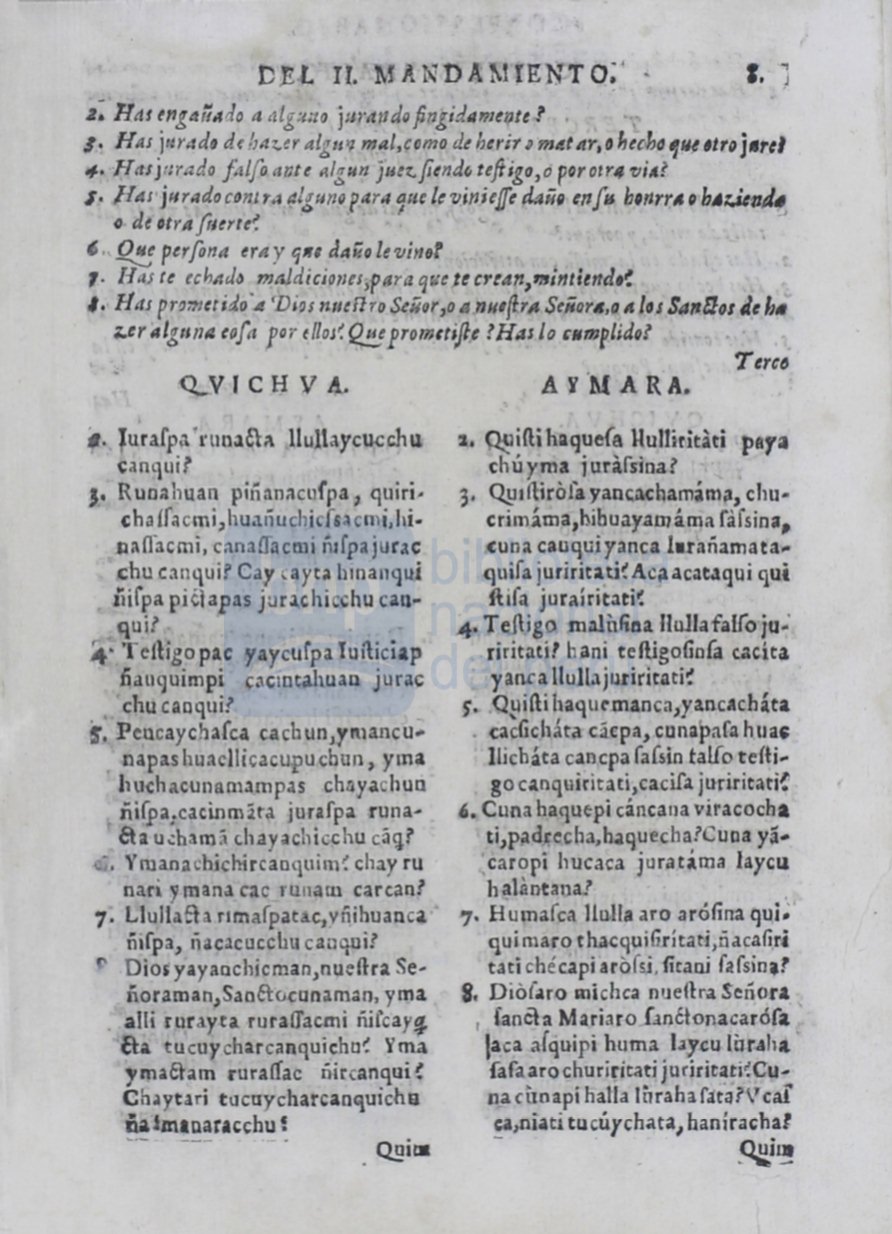 DEL II. MANDAMIENTO. 8.
2. Has engañado a alguno jurando fingidamente?
3. Has jurado de hazer algun mal, como de herir o matar, o hecho que otro jure?
4. Has jurado falso ante algun juez siendo testigo, o por otra via?
5. Has jurado contra alguno para que le viniesse daño en su honrra o hazienda
o de otra suerte?
6. Que persona era y que daño le vino?
7. Has te echado maldiciones, para que te crean, mintiendo?
8. Has prometido a Dios nuestro Señor, o a nuestra Señora, o a los Sanctos de ha
zer alguna cosa por ellos? Que prometiste? Has lo cumplido?
Terce
QVICHVA.
2. Iuraspa runacta llullaycucchu
canqui?
3. Runahuan piñanacuspa, quiri-
chassacmi, huañuchicssacmi, hi-
nassacmi, canassacmi ñispa jurac
chu canqui? Cay cayta hinanqui
ñispa pictapas jurachicchu can-
qui?
4. Testigopac yaycuspa Iusticiap
ñauquimpi cacintahuan jurac
chu canqui?
5. Pencaychasca cachun, ymancu-
napas huacllicacupuchun, yma
huchacunamampas chayachun
ñispa, cacinmãta juraspa runa-
cta uchamã chayachicchu cãq?
Ymanachichircanquim? chay ru
nari ymana cac runam carcan?
7. Llullacta rimaspatac, vñihuanca
ñispa, ñacacucchu canqui?
Dios yayanchicman, nuestra Se-
ñoraman, Sanctocunaman, yma
alli rurayta rurassacmi ñiscayq̃
cta tucuycharcanquichu? Yma
ymactam rurassac ñircanqui?
Chaytari tucuycharcanquichu
ña manaracchu?
Quim
AYMARA.
2. Quisti haquesa llulliritàti paya
chúyma juràssina?
3. Quistiròsa yancachamáma, chu-
crimáma, hihuayamáma sàssina,
cuna cauqui yanca lurañamata-
quisa juriritati? Aca acataqui qui
stisa jurairitati?
4. Testigo malùsina llulla falso ju-
riritati? hani testigosinsa cacíta
yanca llulla juriritati?
5. Quisti haquemanca, yancacháta
cacsicháta cãcpa, cunapasa huac
llicháta cancpa sassin falso testi-
go canquiritati, cacisa juriritati?
6. Cuna haquepi cáncana viracocha
ti, padrecha, haquecha? Cuna yã-
caropi hucaca juratáma laycu
halàntana?
7. Humasca llulla aro arósina qui-
quimaro thacquisirítati, ñacasiri
tati chécapi aròssi, sitani sassina?
8. Diòsaro michca nuestra Señora
sancta Mariaro sanctonacarósa
laca asquipi huma laycu lùraha
sasa aro churiritati juriritati? Cu-
na cùnapi halla lùraha sata? Vcas
ca, niati tucúychata, haníracha?
Quim